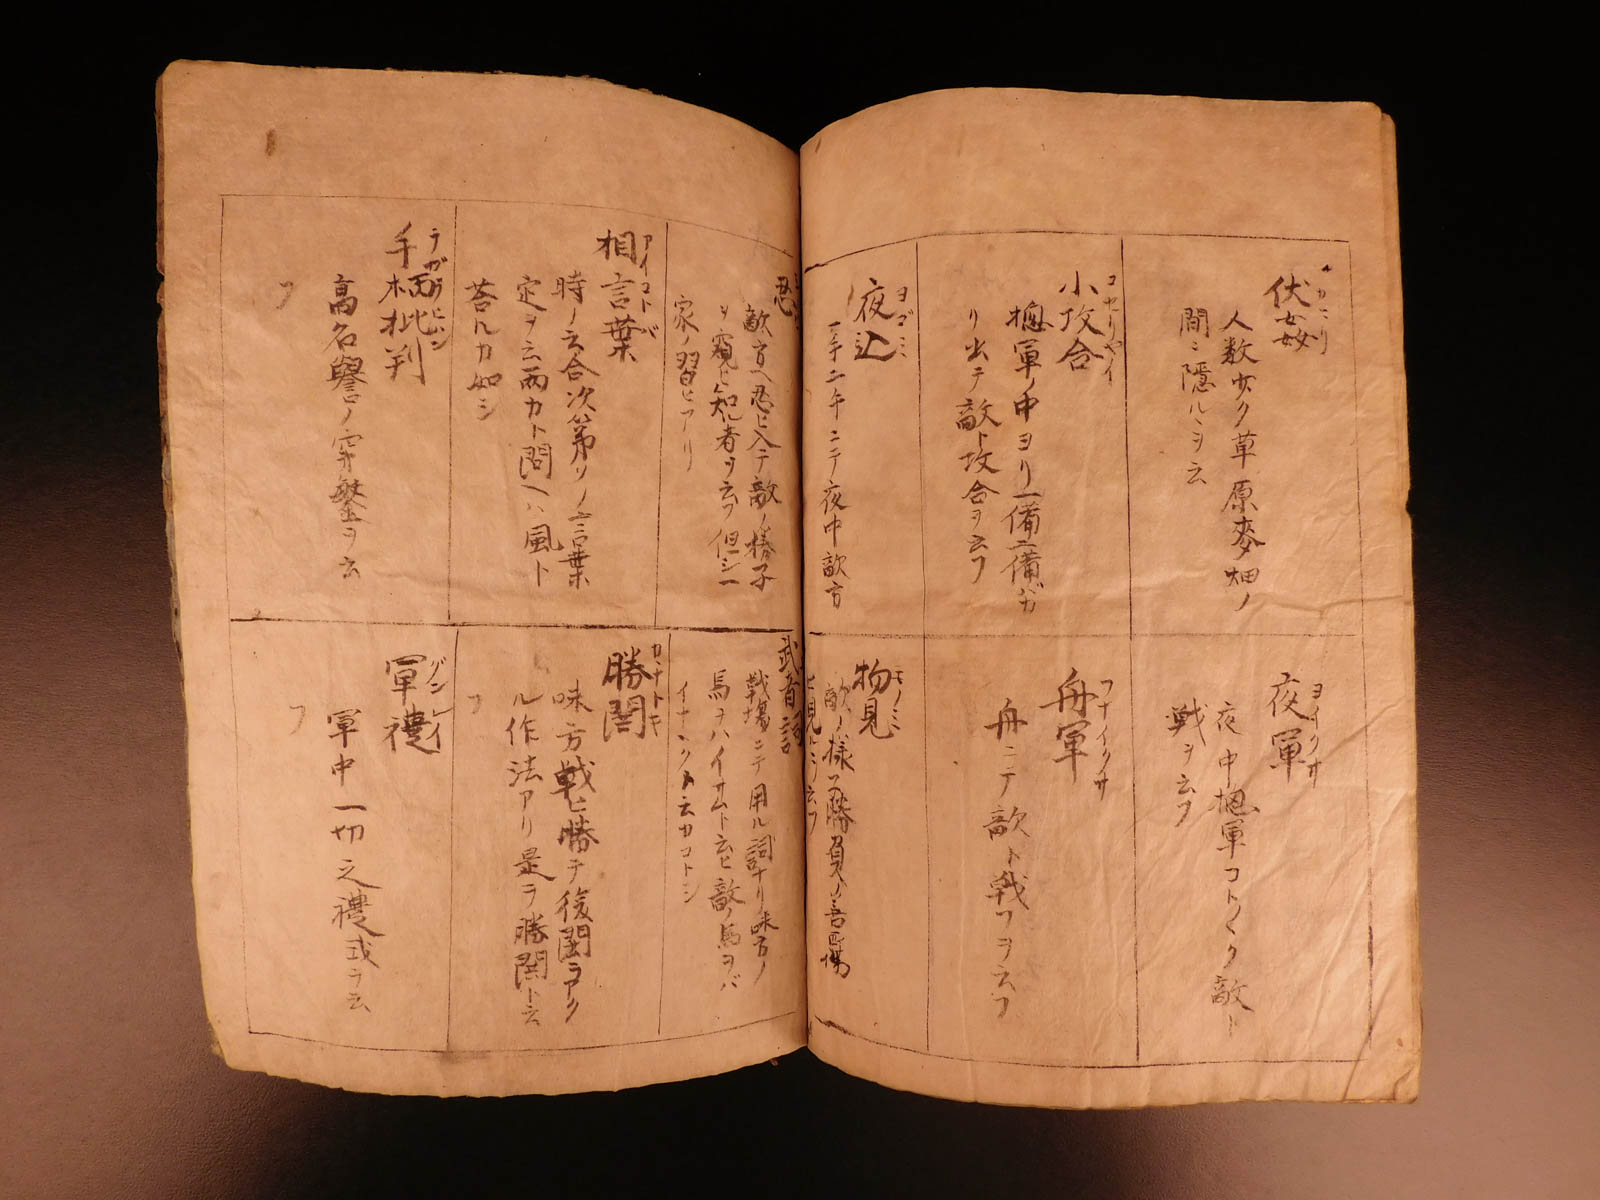 伏姦
人数少ク草原麥畑ノ
間ニ隠ルヽヲ云
夜軍
ヨイクサ
夜中揔軍コト〱ク敵ト
戦ヲ云フ
小攻合
コセリアイ
揔軍ノ中ヨリ一備二備ガ
リ出テ敵ト攻合ヲ云フ
舟軍
フナイクサ
舟ニテ敵ト戦フヲ云フ
夜込
ヨゴミ
一手二手ニテ夜中敵方
物見
モノミ
敵ノ様子勝負ノ善悪場
ヒ見トヾヲ云フ
忍
敵方ヘ忍ヒ入テ敵ノ様子
ヲ窺ヒ知ル者ヲ云フ但シ一
家ノ習ヒアリ
武者詞
戦場ニテ用ル詞ナリ味方ノ
馬ヲハイサムト云ヒ敵ノ馬ヲバ
イナヽクト云カコトシ
相言葉
アイコトバ
時ノ云合次第ソノ言葉
定ヲ云雨カト問ヘハ風ト
荅ルカ如シ
勝閧
カチトキ
味方戦ヒ勝テ後閧ヲアク
ル作法アリ是ヲ勝閧ト云
フ
手柄批判
テガラヒハン
高名譽ノ穿鑿ヲ云
フ
軍禮
グンレイ
軍中一切之禮式ヲ云
フ